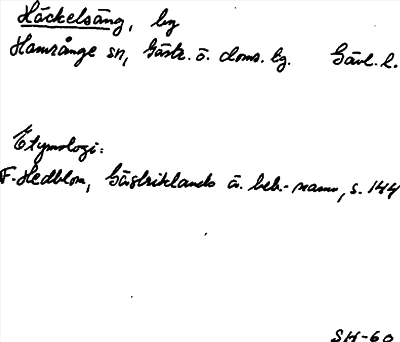 Häckelsäng, by
Hamrånge sn, Gästr. ö. doms. hg. Gävl. l.
Etymologi:
F. Hedblom, Gästriklands ä. beb.-namn, s. 144
SH-60